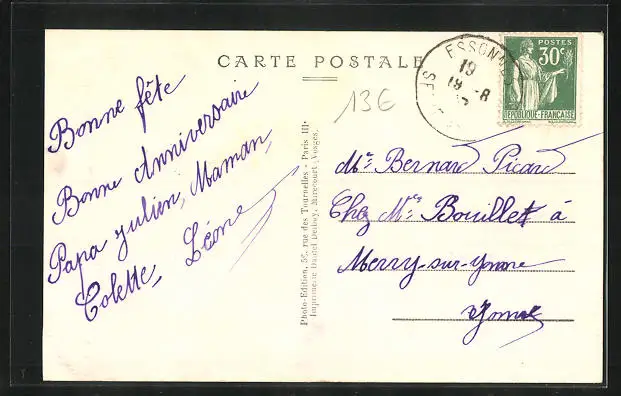 CARTE POSTALE
Bonne fête
Bonne Anniversaire
Papa Julien, Maman,
Colette, Léone
13€
ESSONNES
19
18 -8
POSTES
30c
REPUBLIQUE-FRANÇAISE
Photo-Edition, 59, rue des Tournelles - Paris III·
Imprimerie Daniel Delboy, Mirecourt, Vosges.
Mr Bernard Picard
Chez Mr Bouillet à
Merry-sur-Yonne
Yonne